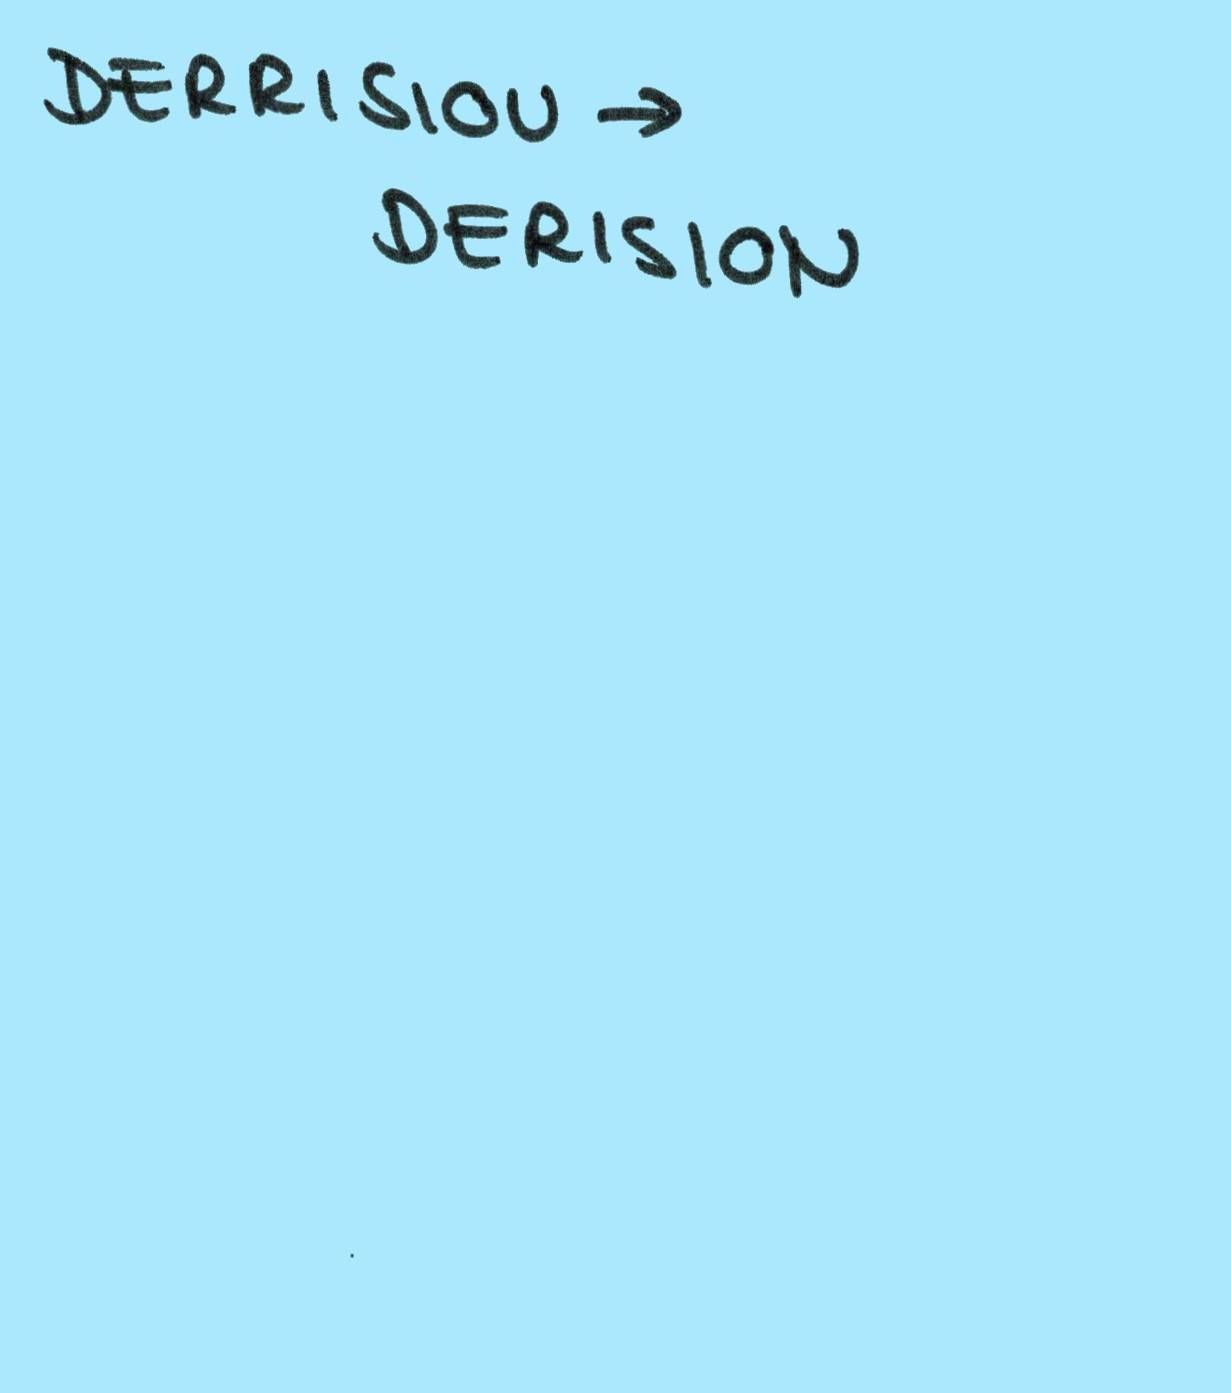 DERRISIOU →
DERISION